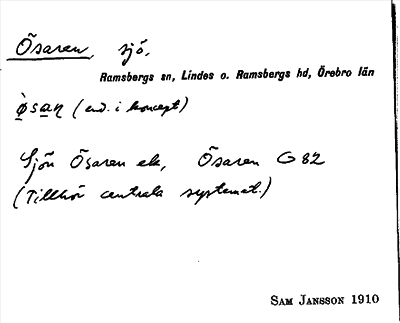 Ösaren, sjö.
Ramsbergs sn, Lindes o. Ramsbergs hd, Örebro län
ø̀sạṇ (end. i koncept)
Sjön Ösaren ek, Ösaren G 82
(Tillhör centrala systemat.)
SAM JANSSON 1910